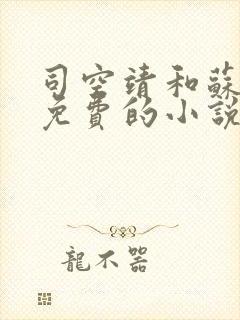 司空靖和蘇
免費的小說
龍不器